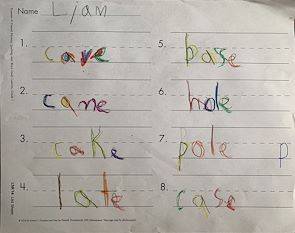 Name Liam
1. cave
2. cane
3. cake
4. late
5. base
6. hole
7. pole p
8. case